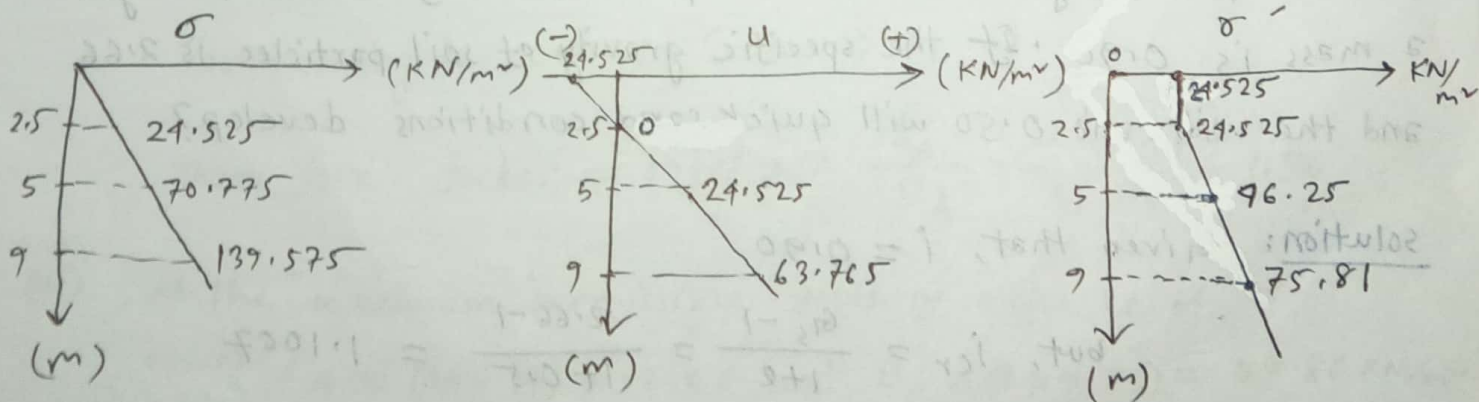 σ
(KN/m²)
2.5 24.525
5 70.775
9 139.575
(m)
(-) u (+)
24.525 (KN/m²)
2.5 0
5 24.525
9 63.765
(m)
σ′
0 KN/m²
24.525
2.5 24.525
5 46.25
9 75.81
(m)